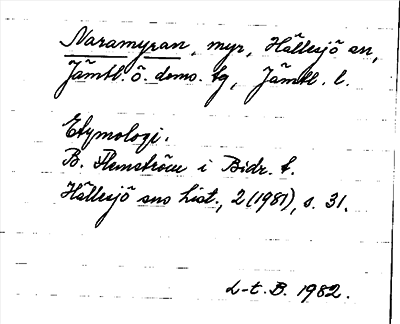 Naramyran, myr, Hällesjö sn,
Jämtl. ö. doms. tg, Jämtl. l.
Etymologi.
B. Flemström i Bidr. t.
Hällesjö sns hist., 2 (1981), s. 31.
L-t. B. 1982.